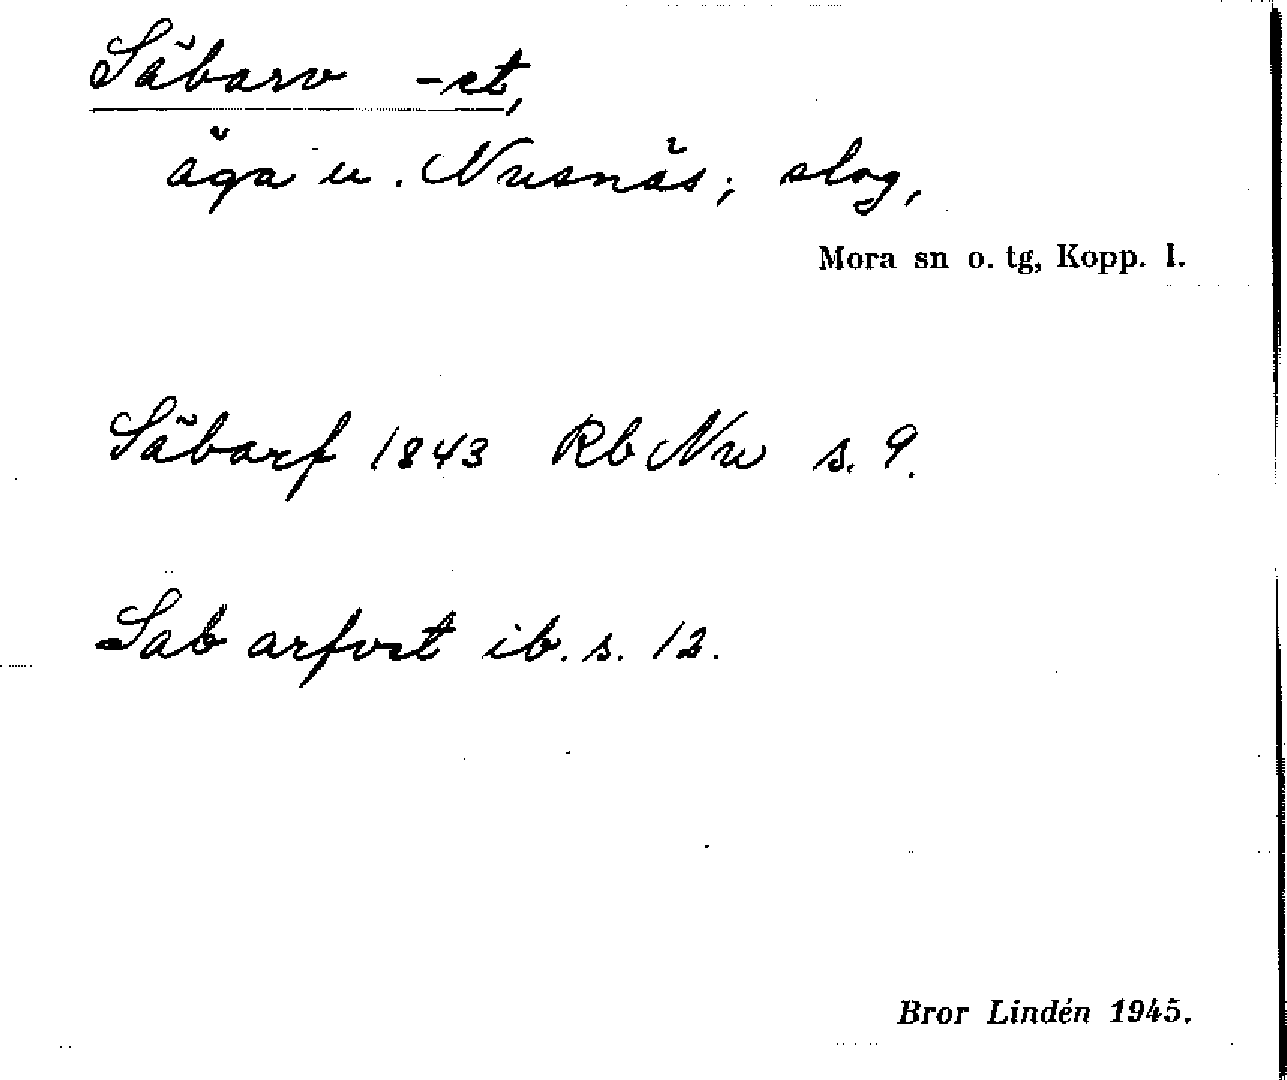 Säbarv -et,
äga u. Nusnäs; slog,
Mora sn o. tg, Kopp. l.
Säbarf 1843 Rb Nu s. 9.
Sab arfvet ib. s. 12.
Bror Lindén 1945.